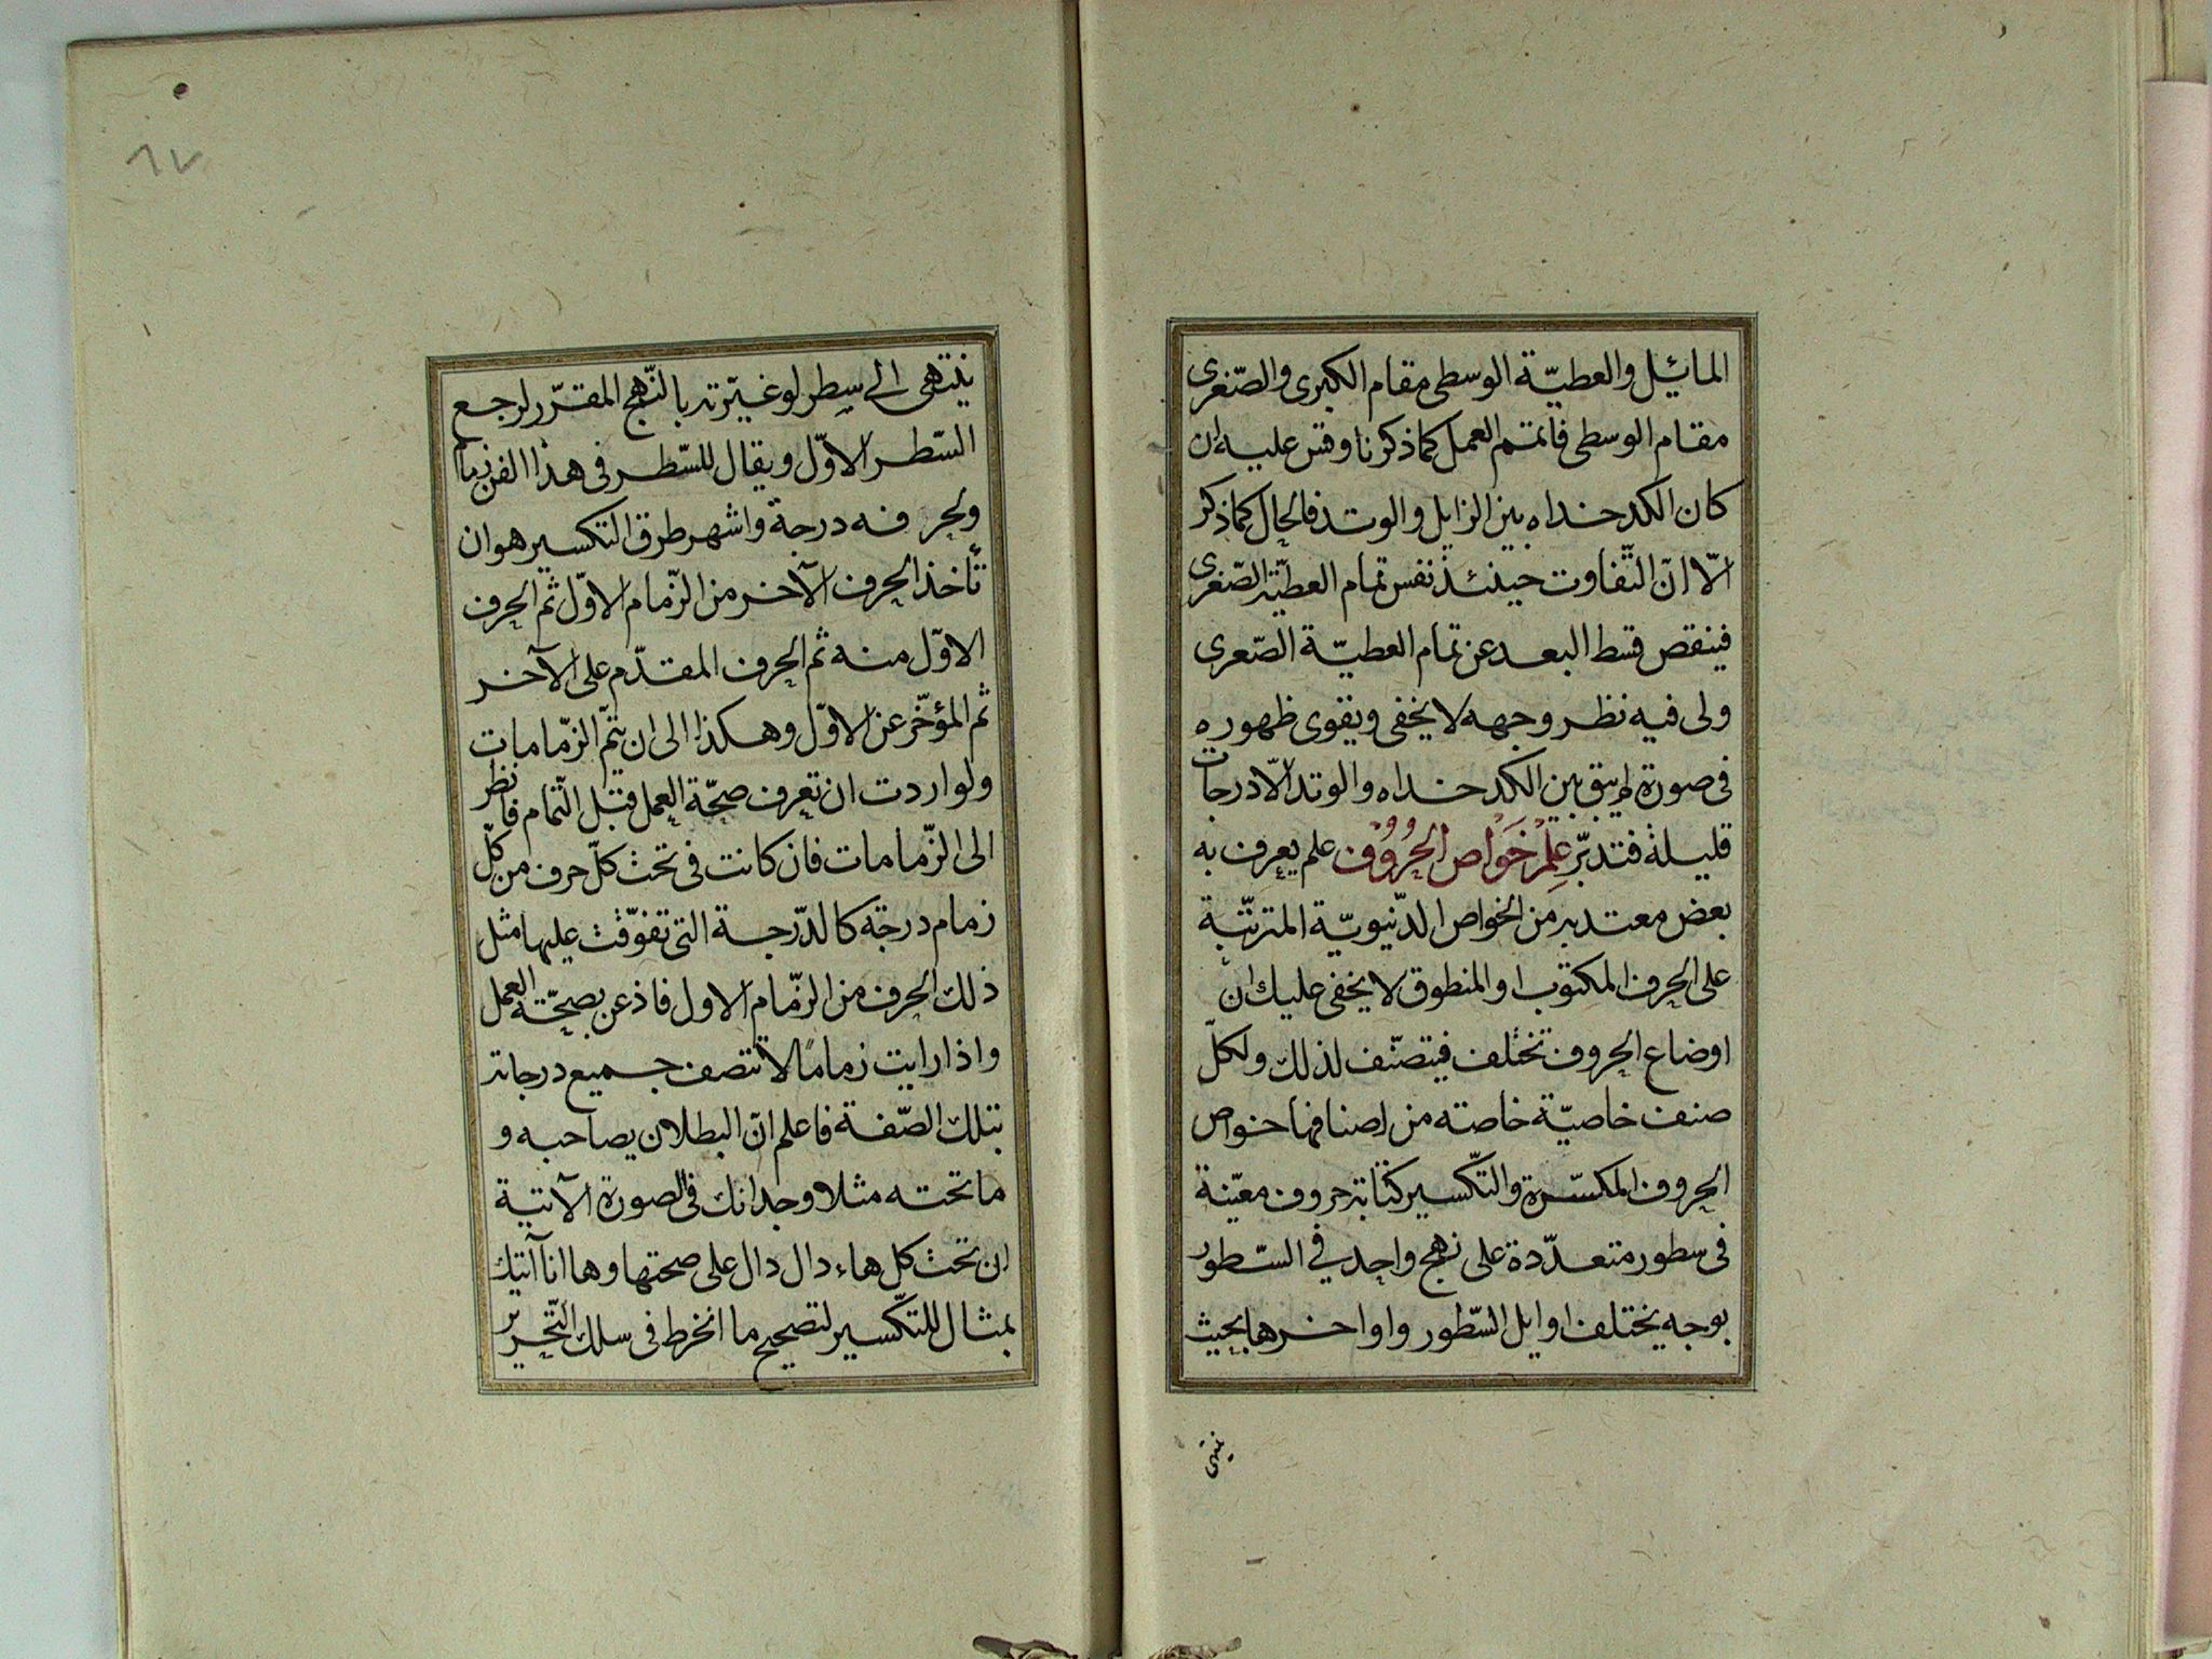 المائيل والعطيّة الوسطى مقام الكبرى والصّغرى
مقام الوسطى فاتمم العمل كما ذكرنا وقس عليه ان
كان الكدخداه بين الزايل والوتد فالحال كما ذكر
الّا انّ التّفاوت حينئذ نفس تمام العطيّة الصّغرى
فينقص قسط البعد عن تمام العطيّة الصّغرى
ولى فيه نظر وجهه لا يخفى ويقوى ظهوره
فى صورة لم يبق بين الكدخداه والوتد الّا درجات
قليلة فتدبّر علم خواص الحروف علم يعرف به
بعض معتد به من الخواص الدّنيويّة المترتّبة
على الحرف المكتوب او المنطوق لا يخفى عليك ان
اوضاع الحروف تختلف فيتصنّف لذلك ولكلّ
صنف خاصيّة خاصته من اصنافها خواص
الحروف المكسّرة والتّكسير كتابة حروف معيّنة
فى سطور متعدّدة على نهج واحد في السّطور
بوجه يختلف اوايل السّطور واواخرها بحيث
ينتهى
ينتهى الى سطر لو غيّرته بالنّهج المقرّر لرجع
السّطر الاوّل ويقال للسّطر فى هذا الفن زماما
ولحرفه درجة واشهر طرق التكسير هو ان
تأخذ الحرف الآخر من الزّمام الاوّل ثم الحرف
الاوّل منه ثم الحرف المقدّم على الآخر
ثم المؤخّر عن الاوّل وهكذا الى ان يتمّ الزّمامات
ولو اردت ان تعرف صحّة العمل قبل التّمام فانظر
الى الزّمامات فان كانت فى تحت كلّ حرف من كلّ
زمام درجة كالدّرجة التى تفوّقت عليها مثل
ذلك الحرف من الزّمام الاول فاذعن بصحّة العمل
واذا رايت زمامًا لا تتصف جميع درجاته
بتلك الصّفة فاعلم انّ البطلان يصاحبه و
ما تحته مثلا وجدانك فى الصورة الآتية
ان تحت كل هاء دال دال على صحتها وها انا آتيك
بمثال للتكّسير لتصحيح ما انخرط فى سلك التّحرير
٦٧